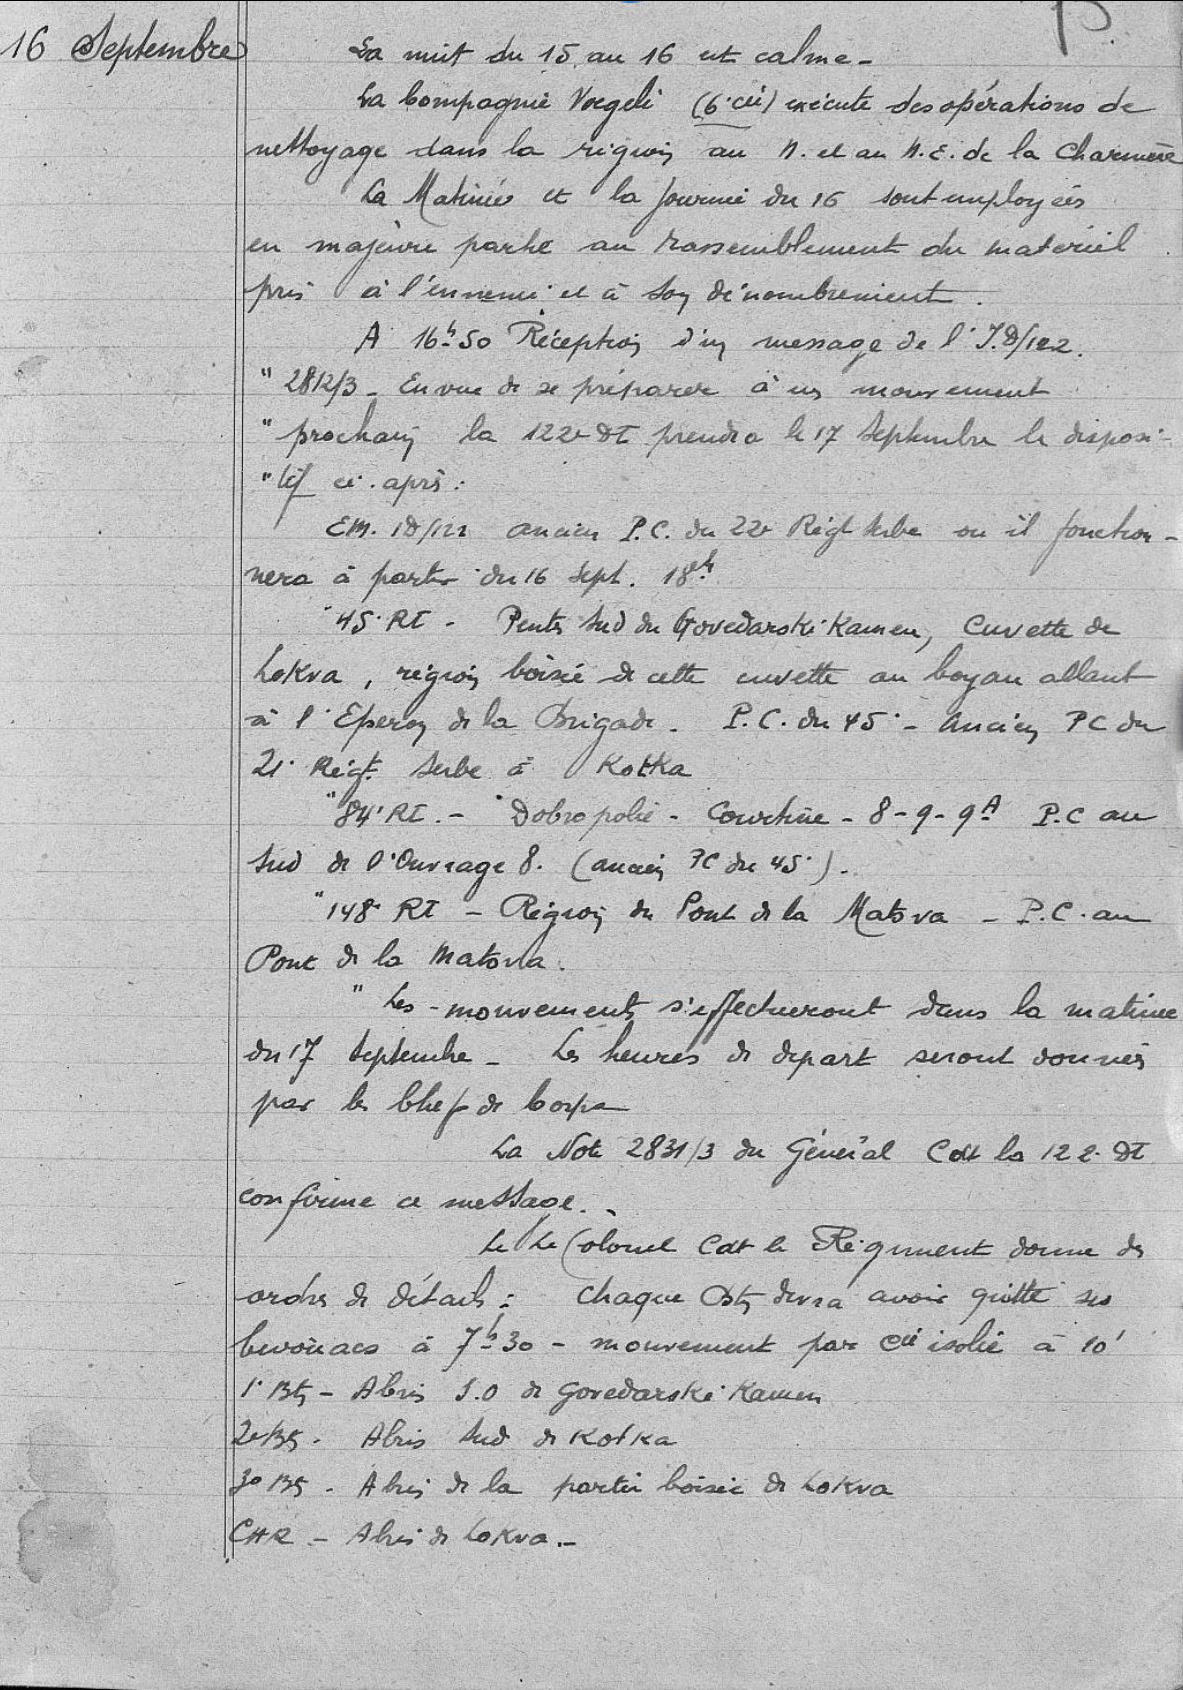 16 Septembre
La nuit du 15 au 16 est calme -
La Compagnie Voegeli (6e Cie) exécute des opérations de
nettoyage dans la région au N. et au N.E. de la Charmière
La Matinée et la journée du 16 sont employées
en majeure partie au rassemblement du matériel
pris à l'ennemi et à son dénombrement.
A 16h50 Réception d'un message de l'I.D/122.
" 2812/3 - En vue de se préparer à un mouvement
" prochain la 122e DI prendra le 17 Septembre le disposi-
" tif ci-après :
EM. ID/122 ancien P.C. du 22e Régt Serbe ou il fonction-
nera à partir du 16 Sept. 18h
" 45e RI - Pentes Sud du Govedarski Kamen, Cuvette de
Lokva, région boisée de cette cuvette au boyau allant
à l'Eperon de la Brigade. P.C. du 45e - Ancien PC du
21e Régt Serbe à Kotka
" 84e RI. - Dobropolié - Courtine - 8-9-9A P.C au
Sud de l'Ouvrage 8. (ancien PC du 45e).
" 148e RI - Région du Pont de la Matova - P.C. au
Pont de la Matova.
" Les mouvements s'effectueront dans la matinée
du 17 Septembre - Les heures de départ seront données
par les Chefs de Corps
La Note 2831/3 du Général Cdt la 122e DI
confirme ce message. -
Le Lt Colonel Cdt le Régiment donne des
ordres de détails : Chaque Btn devra avoir quitté ses
bivouacs à 7h30 - mouvement par Cie isolée à 10'
1e Btn - Abris S.O de Govedarski Kamen
2e Btn - Abris Sud de Kotka
3e Btn - Abris de la partie boisée de Lokva
CHR - Abris de Lokva. -